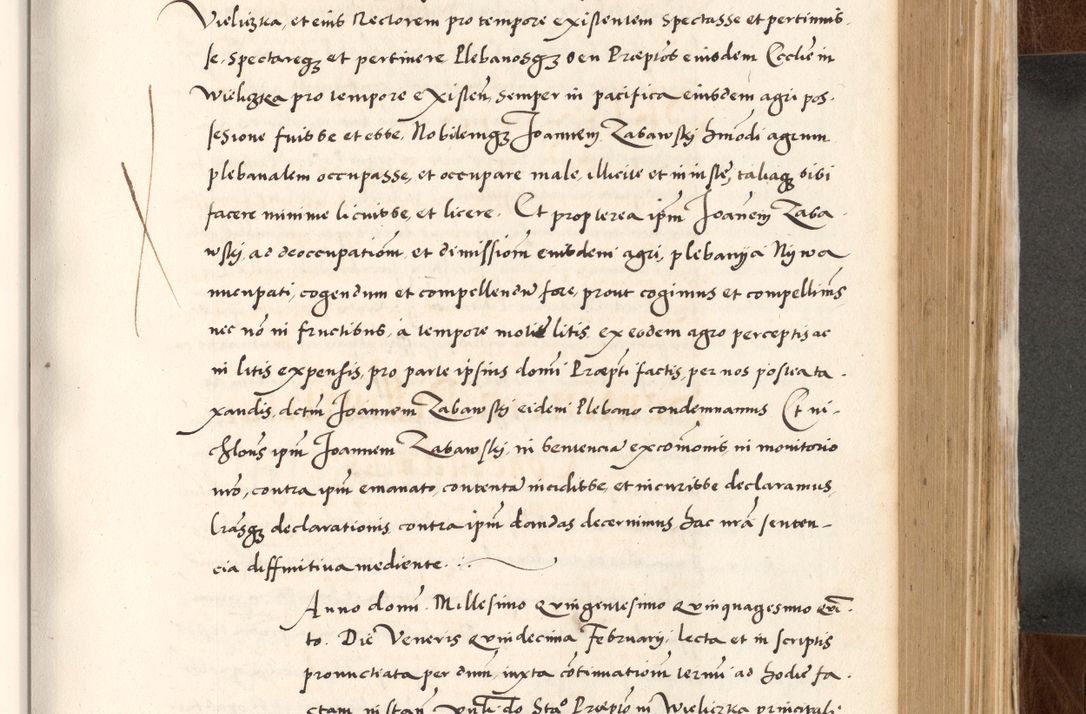 Vieliczka, et eius Rectorem pro tempore existentem spectasse et pertinuis-
se, spectareqꝫ et pertinere Plebanosqꝫ seu Præptos eiusdem Ecclie in
Wieliczka pro tempore existen, semper in pacifica eiusdem agri pos-
sesione fuisse et esse, Nobilemqꝫ Joannem Zabawski hmodi agrum
plebanalem occupasse, et occupare male, illicite et iniuste, taliaqꝫ sibi
facere minime licuisse, et licere. Et propterea ipm Joanem Zaba-
wski, ad deoccupationm, et dimissionm eiusdem agri, plebanija Nijwa
nuncupati, cogendum et compellendu fore, prout cogimus et compellims
nec no in fructibus, a tempore motae litis ex eodem agro perceptis ac
in litis expensis, pro parte ipsius domi Præpti factis, per nos postea ta-
xandis, dctm Joannem Zabawski eidem Plebano condemnamus Et ni-
chlons ipm Joannem Zabawski, in sentencia excomonis, in monitorio
nro, contra ipm emanato, contenta incidisse, et incurisse declaramus,
lrasqꝫ declarationis contra ipm dandas decernimus hac nra senten-
cia diffinitiva mediente.
Anno domi. Millesimo Quingentesimo Quinquagesimo Qui-
to. Die Veneris Quindecima Februarij, lecta et in scriptis
pronunctiata per dnm, iuxta cotinuationm termi ad hodie fa-
ctam, in stan Vnlis do Sta° Præpto in Wieliczka principali